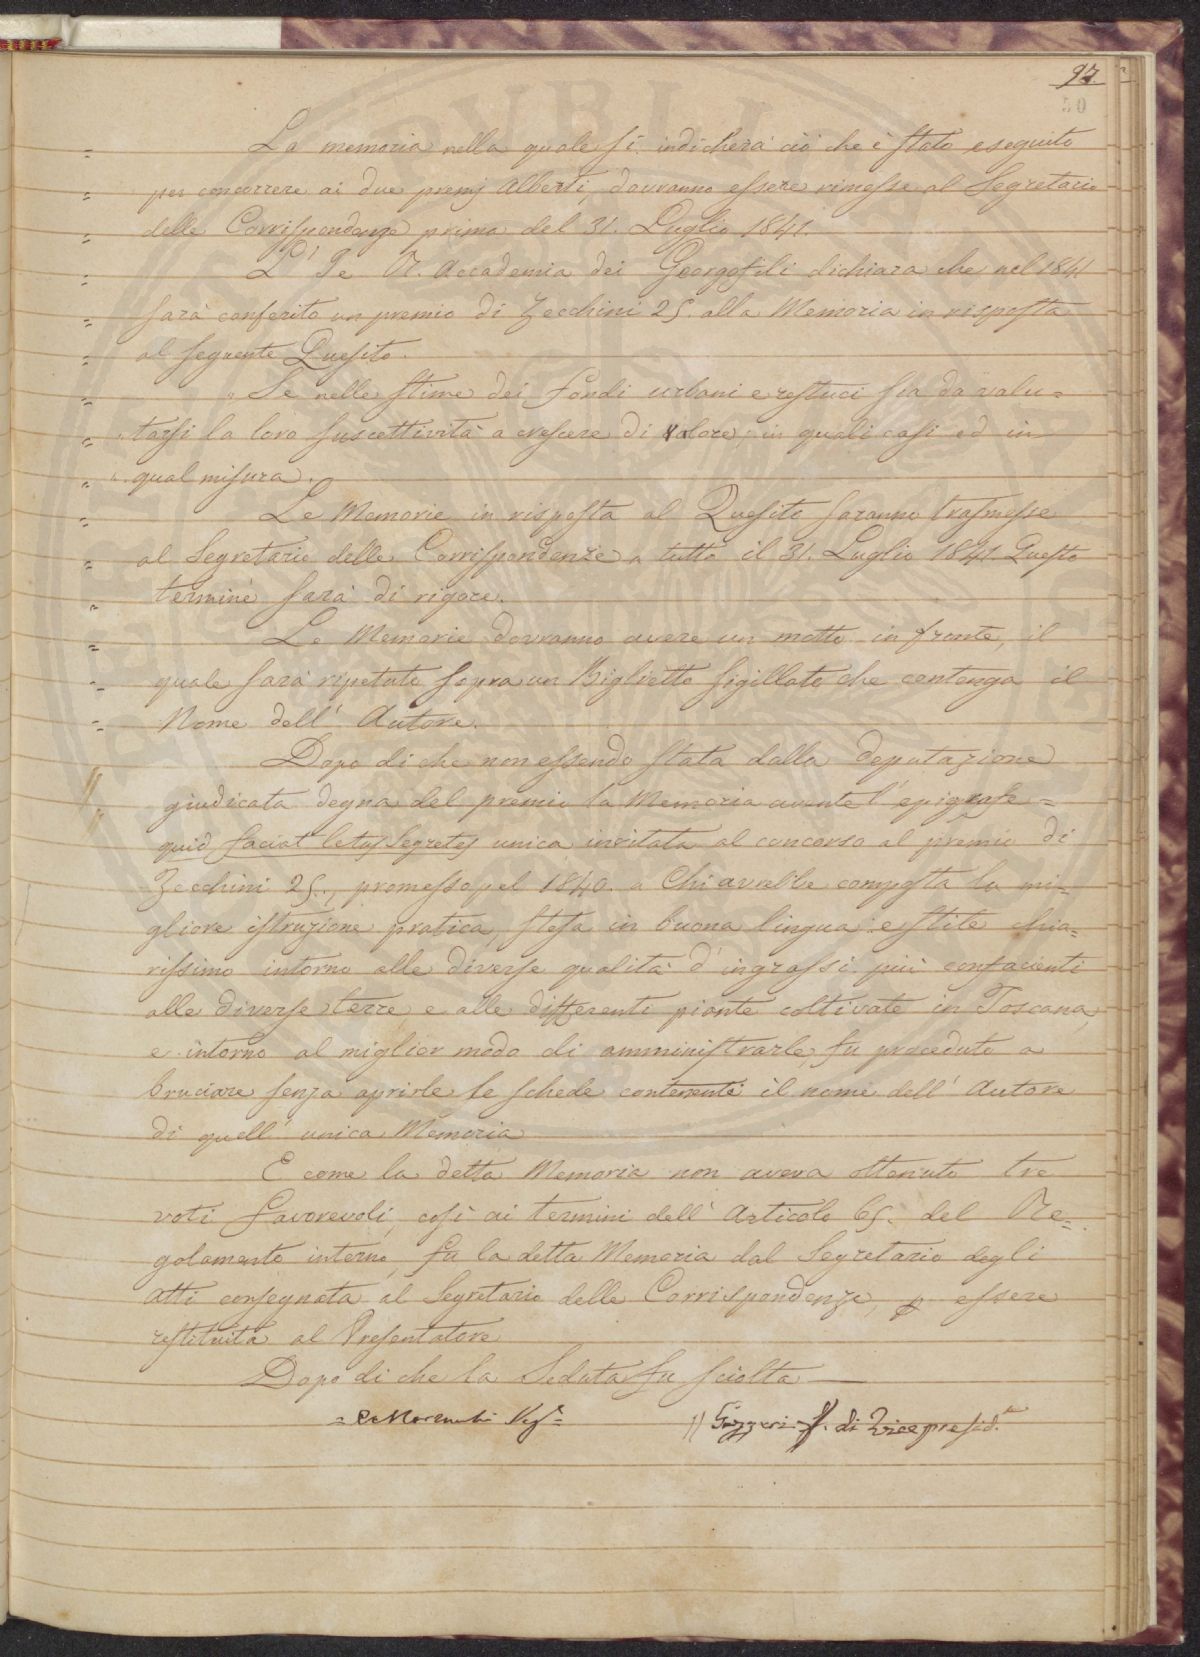 97.
50
La memoria nella quale si indicherà ciò che è stato eseguito
per concorrere ai due premj Alberti, dovranno essere rimesse al Segretario
delle Corrispondenze prima del 31. Luglio 1841.
L' I e R. Accademia dei Georgofili dichiara che nel 1841
sarà conferito un premio di Zecchini 25. alla Memoria in risposta
al seguente Quesito.
" Se nelle stime dei fondi urbani e rustici sia da valu=
" tarsi la loro suscettività a crescere di valore, in quali casi ed in
" qual misura.
Le Memorie in risposta al Quesito saranno trasmesse
al Segretario delle Corrispondenze a tutto il 31. Luglio 1841. Questo
termine sarà di rigore.
Le Memorie dovranno avere un motto in fronte, il
quale sarà ripetuto sopra un Biglietto sigillato che contenga il
Nome dell' Autore.
Dopo di che non essendo stata dalla deputazione
giudicata degna del premio la Memoria avente l' epigrafe =
quid faciat letas segetes unica invitata al concorso al premio di
Zecchini 25., promesso pel 1840. a Chi avrebbe composta la mi=
gliore istruzione pratica, stesa in buona lingua e stile chia=
rissimo intorno alle diverse qualità d' ingrassi più confacenti
alle diverse terre, e alle differenti piante coltivate in Toscana,
e intorno al miglior modo di amministrarle, fu proceduto a
bruciare senza aprirle le schede contenenti il nome dell' Autore
di quell' unica Memoria
E come la detta Memoria non aveva ottenuto tre
voti favorevoli, così ai termini dell' Articolo 65. del Re=
golamento interno, fu la detta Memoria dal Segretario degli
atti consegnata al Segretario delle Corrispondenze, p essere
restituita al Presentatore
Dopo di che la Seduta fu sciolta
Gazzeri f. di Vicepresid.te